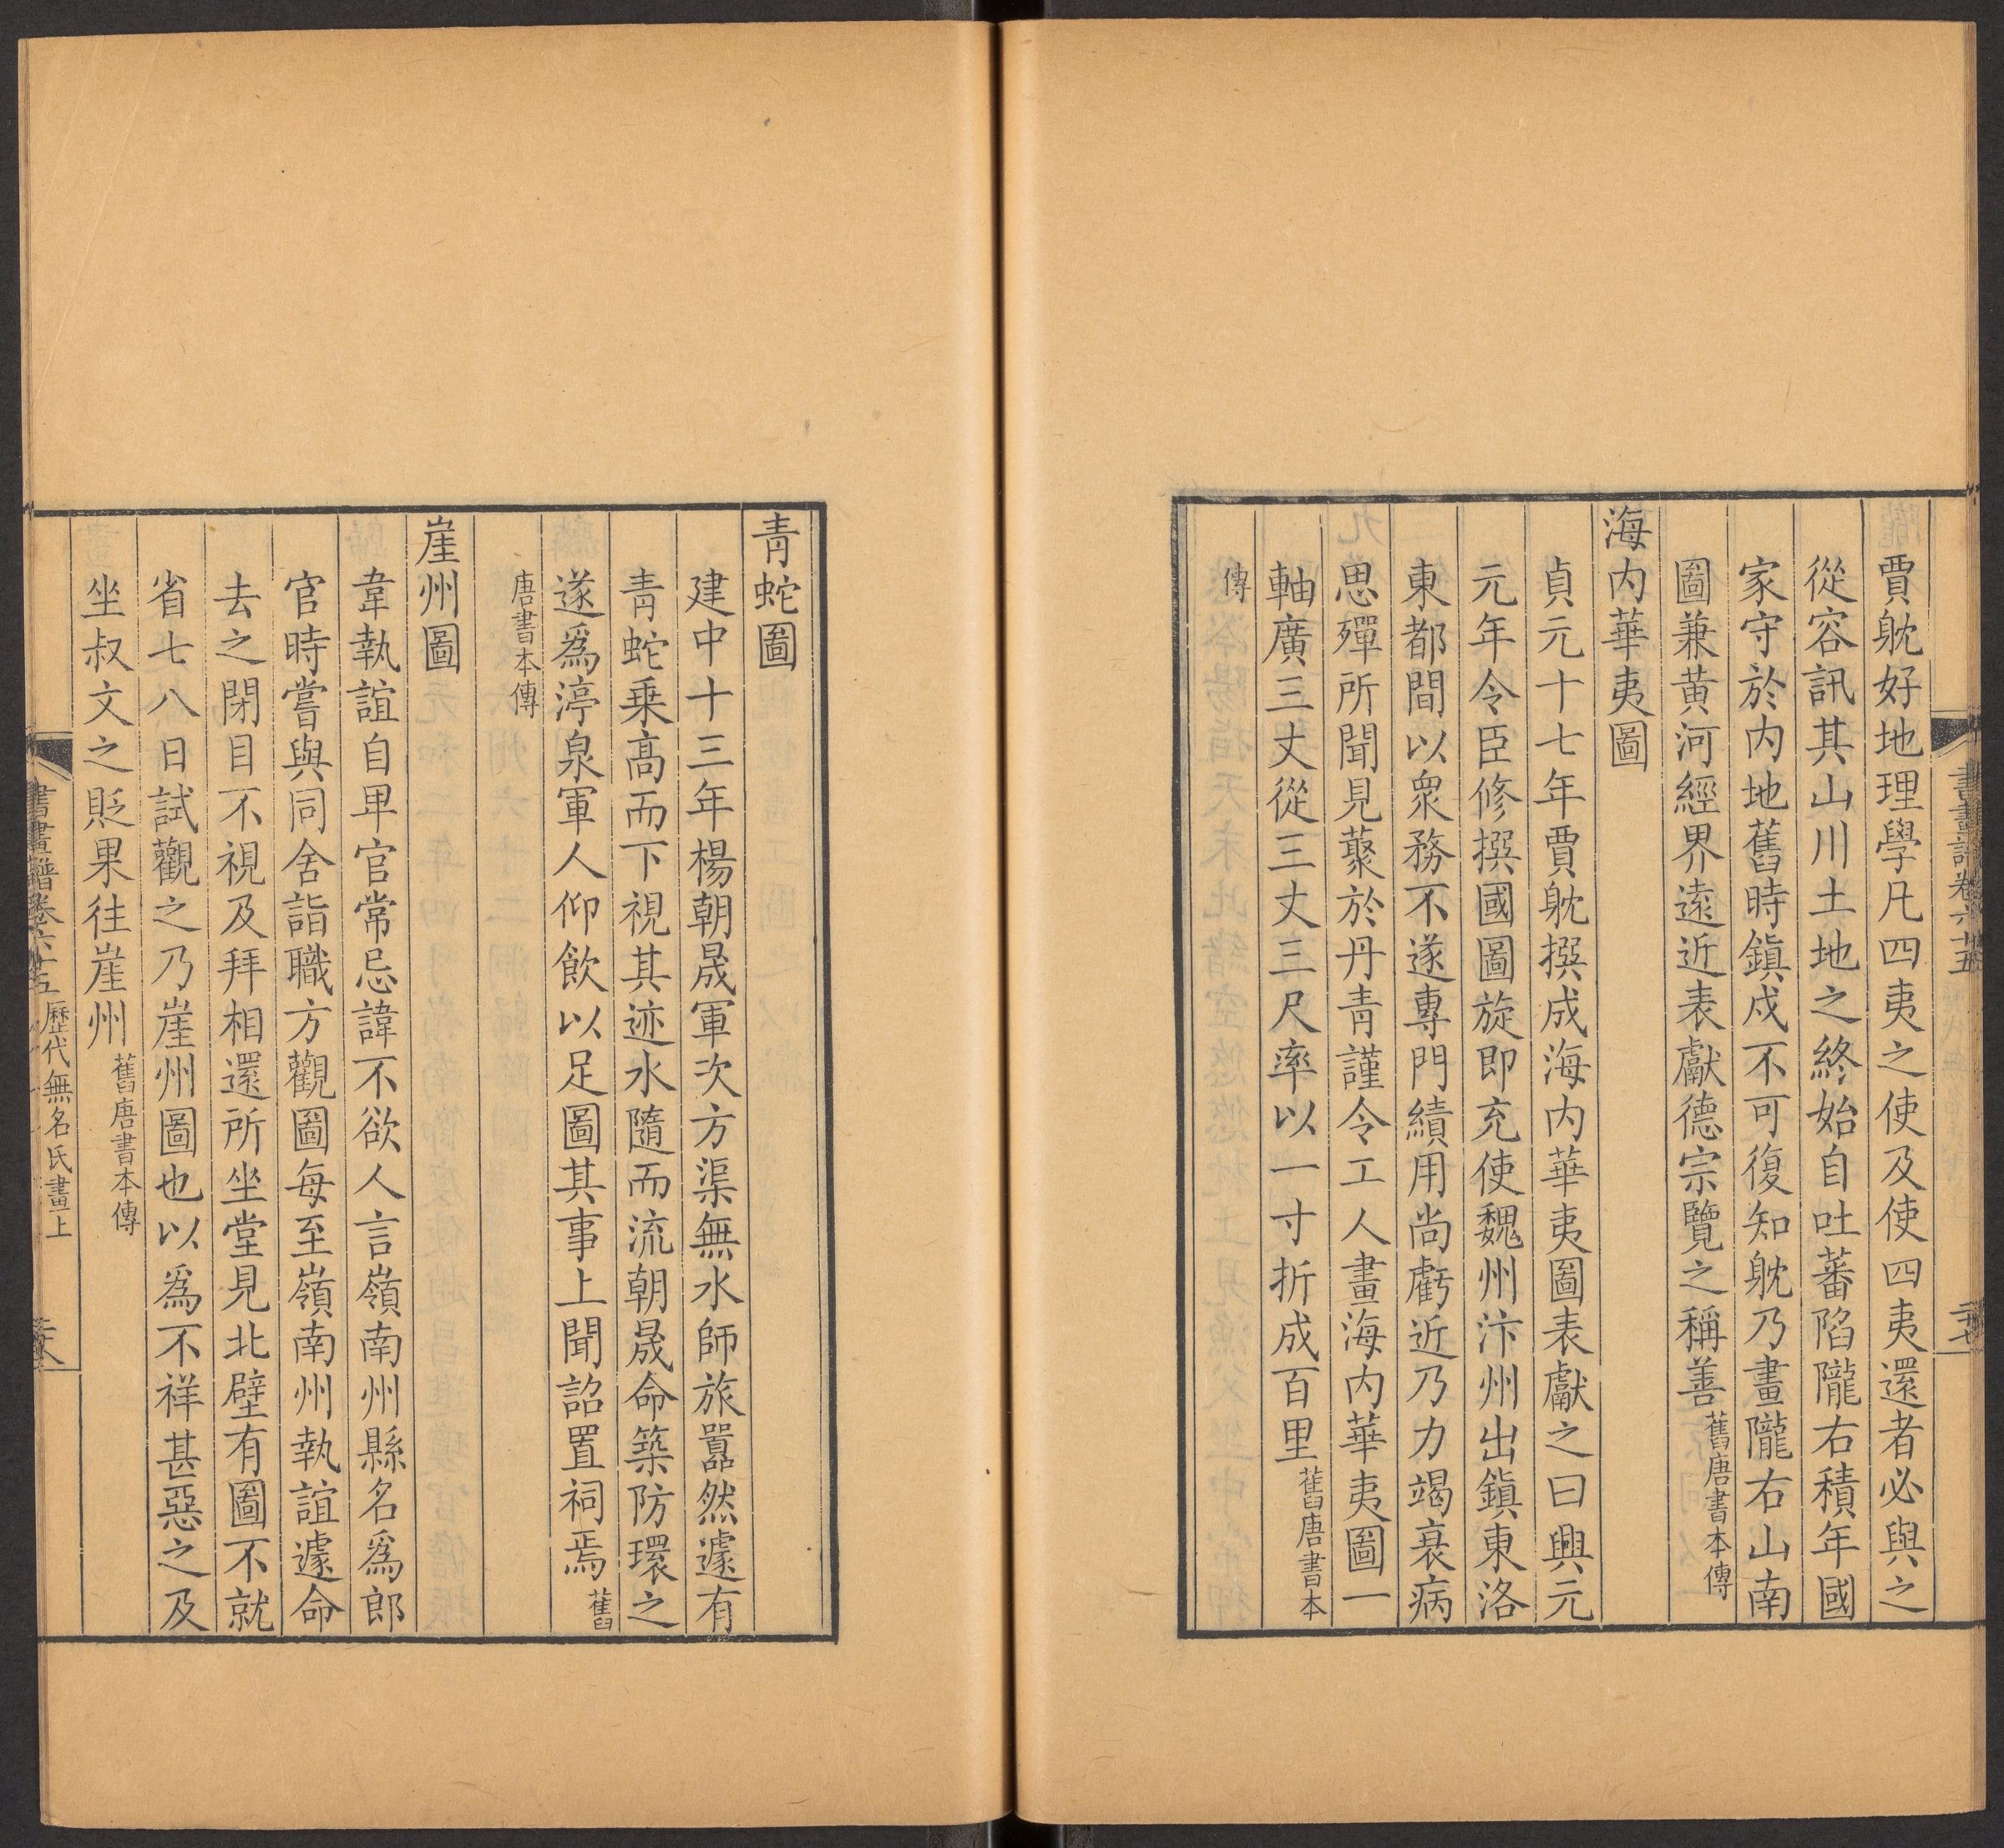 賈躭好地理學凡四夷之使及使四夷還者必與之
從容訊其山川土地之終始自吐蕃陷隴右積年國
家守於内地舊時鎮戍不可復知躭乃畫隴右山南
圖兼黄河經界遠近表獻德宗覽之稱善舊唐書本傳
海内華夷圖
貞元十七年賈躭撰成海内華夷圖表獻之曰興元
元年令臣修撰國圖旋即充使魏州汴州出鎮東洛
東都間以衆務不遂專門績用尚虧近乃力竭衰病
思殫所聞見藂於丹青謹令工人畫海内華夷圖一
軸廣三丈從三丈三尺率以一寸折成百里舊唐書本
傳
青蛇圖
建中十三年楊朝晟軍次方渠無水師旅囂然遽有
青蛇乗高而下視其迹水隨而流朝晟命築防環之
遂爲渟泉軍人仰飲以足圖其事上聞詔置祠焉舊
唐書本傳
崖州圖
韋執誼自卑官常忌諱不欲人言嶺南州縣名爲郎
官時嘗與同舍詣職方觀圖每至嶺南州執誼遽命
去之閉目不視及拜相還所坐堂見北壁有圖不就
省七八日試觀之乃崖州圖也以爲不祥甚惡之及
坐叔文之貶果往崖州舊唐書本傳
書畫譜卷六十五 歷代無名氏畫上